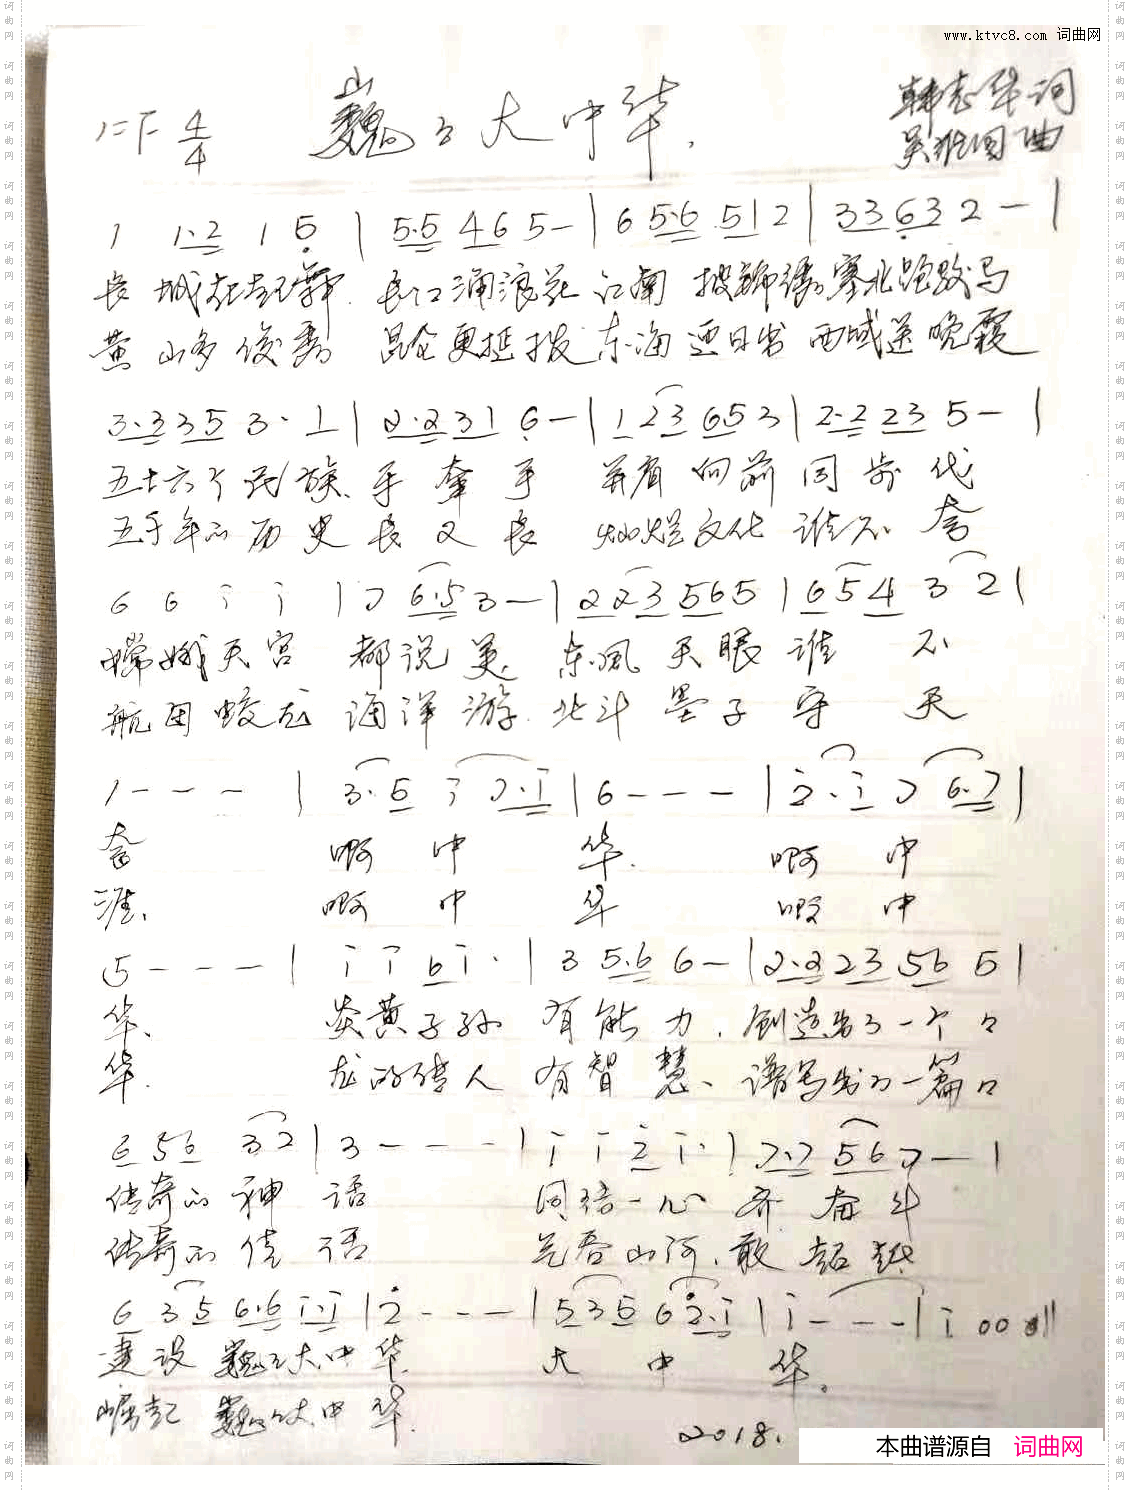 www.ktvc8.com 词曲网
巍々大中华
1=F 4/4
韩志华词
吴 国曲
1 1·2 1 5 | 5·5 4 6 5 - | 6 5·6 5 1 2 | 3 3 6 3 2 - |
长城在起舞 长江涌浪花 江南披锦绣 塞北跑骏马
黄山多俊秀 昆仑更挺拔 东海迎日出 西域送晚霞
3·3 3 5 3· 1 | 2·2 3 1 6 - | 1 2 3 6 5 3 | 2·2 2 3 5 - |
五十六个民族 手牵手 并肩向前同步伐
五千年的历史长又长 灿烂文化谁不夸
6 6 i i | 7 6·5 3 - | 2 2 3 5 6 5 | 6 5 4 3 2 |
嫦娥天宫都说美 东风天眼谁不
航母蛟龙海洋游 北斗墨子守天
1 - - - | 3·5 i 7·i | 6 - - - | 2·i 7 6·7 |
夸 啊中华 啊中
涯 啊中华 啊中
5 - - - | i i 6 i· | 3 5·6 6 - | 2·2 2 3 5 6 5 |
华 炎黄子孙有能力 创造出了一个々
华 龙的传人有智慧 谱写出了一篇々
6 5 6 3 2 | 3 - - - | i i 2 i· | 7·7 5 6 7 - |
传奇的神话 同结一心齐奋斗
传奇的佳话 气吞山河敢超越
6 3 5 6·6 i·i | 2 - - - | 5 3 5 6 2·i | i - - - | i 0 0 0 ‖
建设巍々大中华 大中华。
崛起巍々大中华
2018.
本曲谱源自 词曲网